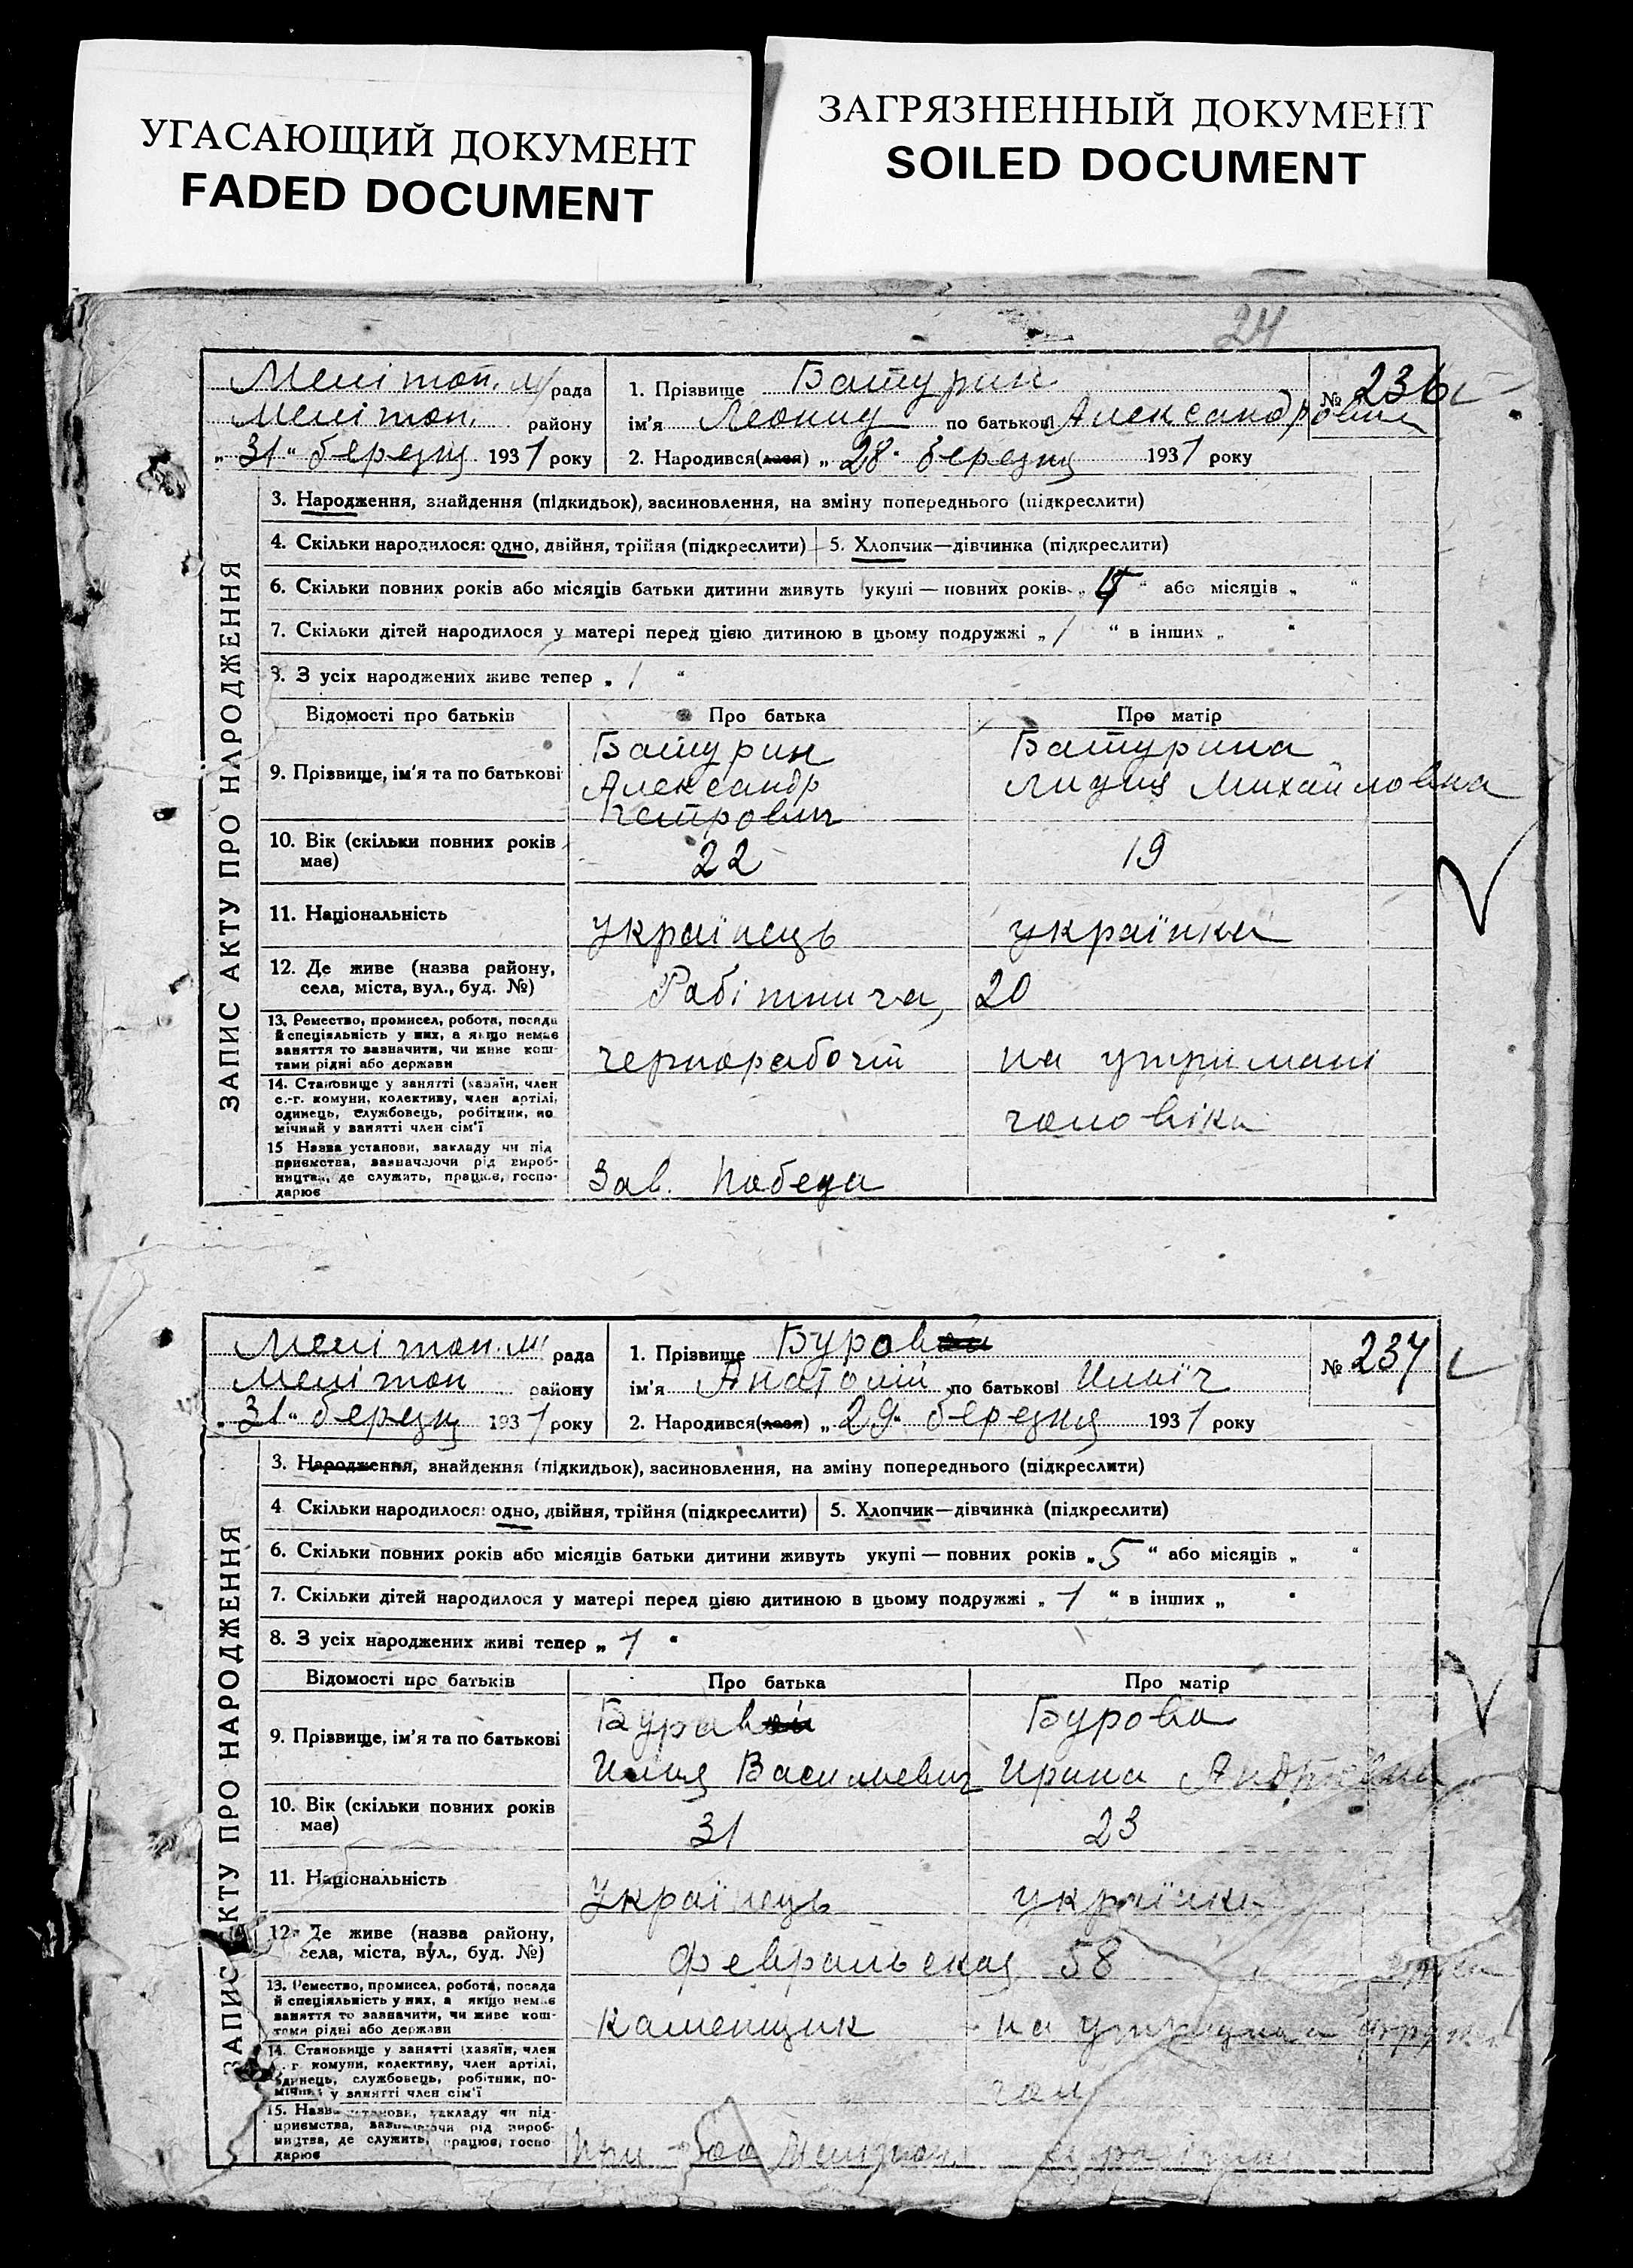 УГАСАЮЩИЙ ДОКУМЕНТ
FADED DOCUMENT
ЗАГРЯЗНЕННЫЙ ДОКУМЕНТ
SOILED DOCUMENT
24
ЗАПИС АКТУ ПРО НАРОДЖЕННЯ
Мелітоп. м/ рада
Мелітоп. району
„31“ березня 1931 року
1. Прізвище Батурин
№ 236
ім'я Леонид по батькові Александрович
2. Народився(лася) „28“ березня 1931 року
3. Народження, знайдення (підкидьок), засиновлення, на зміну попереднього (підкреслити)
4. Скільки народилося: одно, двійня, трійня (підкреслити) 5. Хлопчик—дівчинка (підкреслити)
6. Скільки повних років або місяців батьки дитини живуть укупі — повних років „ “ або місяців „ “
7. Скільки дітей народилося у матері перед цією дитиною в цьому подружжі „1“ в інших „ “
8. З усіх народжених живе тепер „1“
Відомості про батьків Про батька Про матір
9. Прізвище, ім'я та по батькові
Батурин
Александр
Петрович
Батурина
Лидия Михайловна
10. Вік (скільки повних років має)
22 19
11. Національність
українець українка
12. Де живе (назва району, села, міста, вул., буд. №)
Рабітнича, 20
13. Ремество, промисел, робота, посада й спеціяльність у них, а якщо немає заняття то зазначити, чи живе коштами рідні або держави
чернорабочій на утримані
14. Становище у занятті (хазяїн, член с.-г. комуни, колективу, член артілі, одинець, службовець, робітник, помічний у занятті член сім'ї
чоловіка
15 Назва установи, закладу чи підприємства, зазначаючи рід виробництва, де служить, працює, господарює
Зав. Победа
ЗАПИС АКТУ ПРО НАРОДЖЕННЯ
Мелітоп. м/ рада
Мелітоп району
„31“ березня 1931 року
1. Прізвище Буровой
№ 237
ім'я Анатолій по батькові Ильїч
2. Народився(лася) „29“ березня 1931 року
3. Народження, знайдення (підкидьок), засиновлення, на зміну попереднього (підкреслити)
4 Скільки народилося: одно, двійня, трійня (підкреслити) 5. Хлопчик—дівчинка (підкреслити)
6. Скільки повних років або місяців батьки дитини живуть укупі — повних років „5“ або місяців „ “
7. Скільки дітей народилося у матері перед цією дитиною в цьому подружжі „1“ в інших „ “
8. З усіх народжених живі тепер „1“
Відомості про батьків Про батька Про матір
9. Прізвище, ім'я та по батькові
Буравой
Илья Васильевич
Бурова
Ирина
10. Вік (скільки повних років має)
31 23
11. Національність
Українець українка
12. Де живе (назва району, села, міста, вул., буд. №)
Февральская 58
13. Ремество, промисел, робота, посада й спеціяльність у них, а якщо немає заняття то зазначити, чи живе коштами рідні або держави
Каменщик на
14. Становище у занятті (хазяїн, член с.-г. комуни, колективу, член артілі, одинець, службовець, робітник, помічний у занятті член сім'ї
15. Назва установи, закладу чи підприємства, зазначаючи рід виробництва, де служить, працює, господарює
При